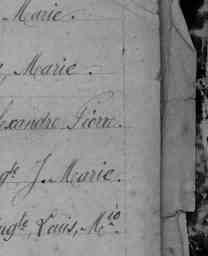 Marie.
, Marie.
lexandre Pierre.
gte J. Marie.
ugte Louis, Mio